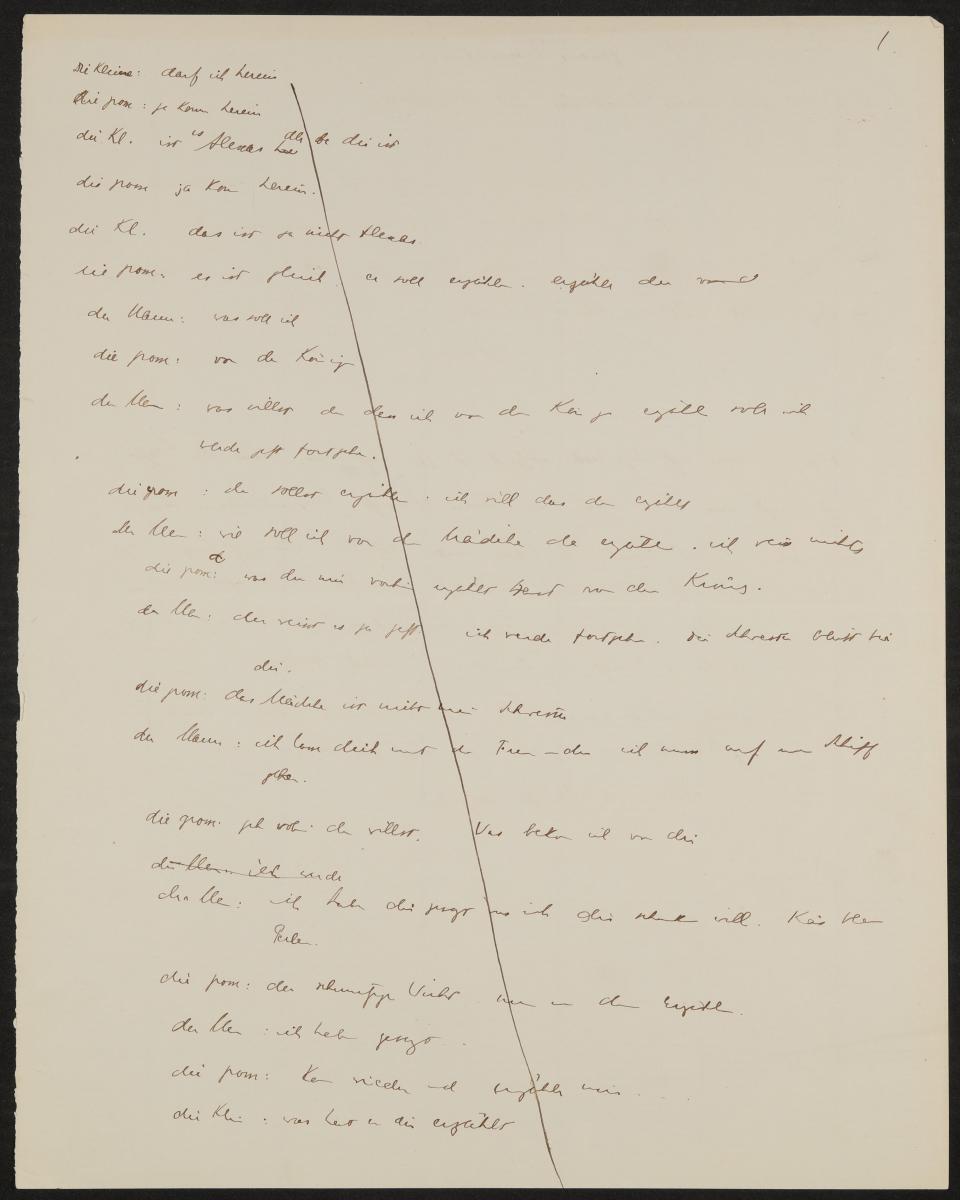 1
die Kleine: darf ich herein
die gross: ja kom herein
die Kl. ist Alexas bei dir ist
die gross ja kom herein.
die Kl. das ist ja nicht Alexas
die gross: es ist gleich. er soll erzählen. erzähle du
der Mann: was soll ich
die gross: von der König
der Man: was willst du dass ich von der erzähle soll ich
werde jetzt fortgehn.
die gross: du sollst erzählen. ich will dass du erzählst
der Man: wie soll ich von dem Mädche da erzählen. ich weis nichts
die gross: was du mir vorhin erzählt hast von der König.
der Man: du weisst es ja jetzt ich werde fortgehn. die Schwester bleibt bei
dir.
die gross: das Mädche ist nicht mein Schwester
der Mann: ich lasse dich mit der ich muss auf mein Schiff
gehen.
die gross: geh wohin du willst. Was bekom ich von dir
der Man ich werde
der Man: ich habe dir gesagt was ich dir schenke will.
Perlen.
die gross: du schmutzige
der Man: ich habe gesagt..
die gross: Kom wieder und erzähle mir....
die Klei: was hat er dir erzählt